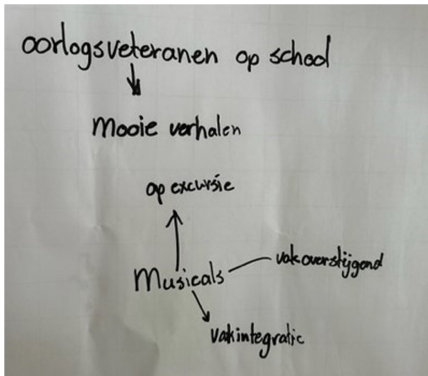 oorlogsveteranen op school
Mooie verhalen
op excursie
Musicals
vakoverstijgend
vakintegratie